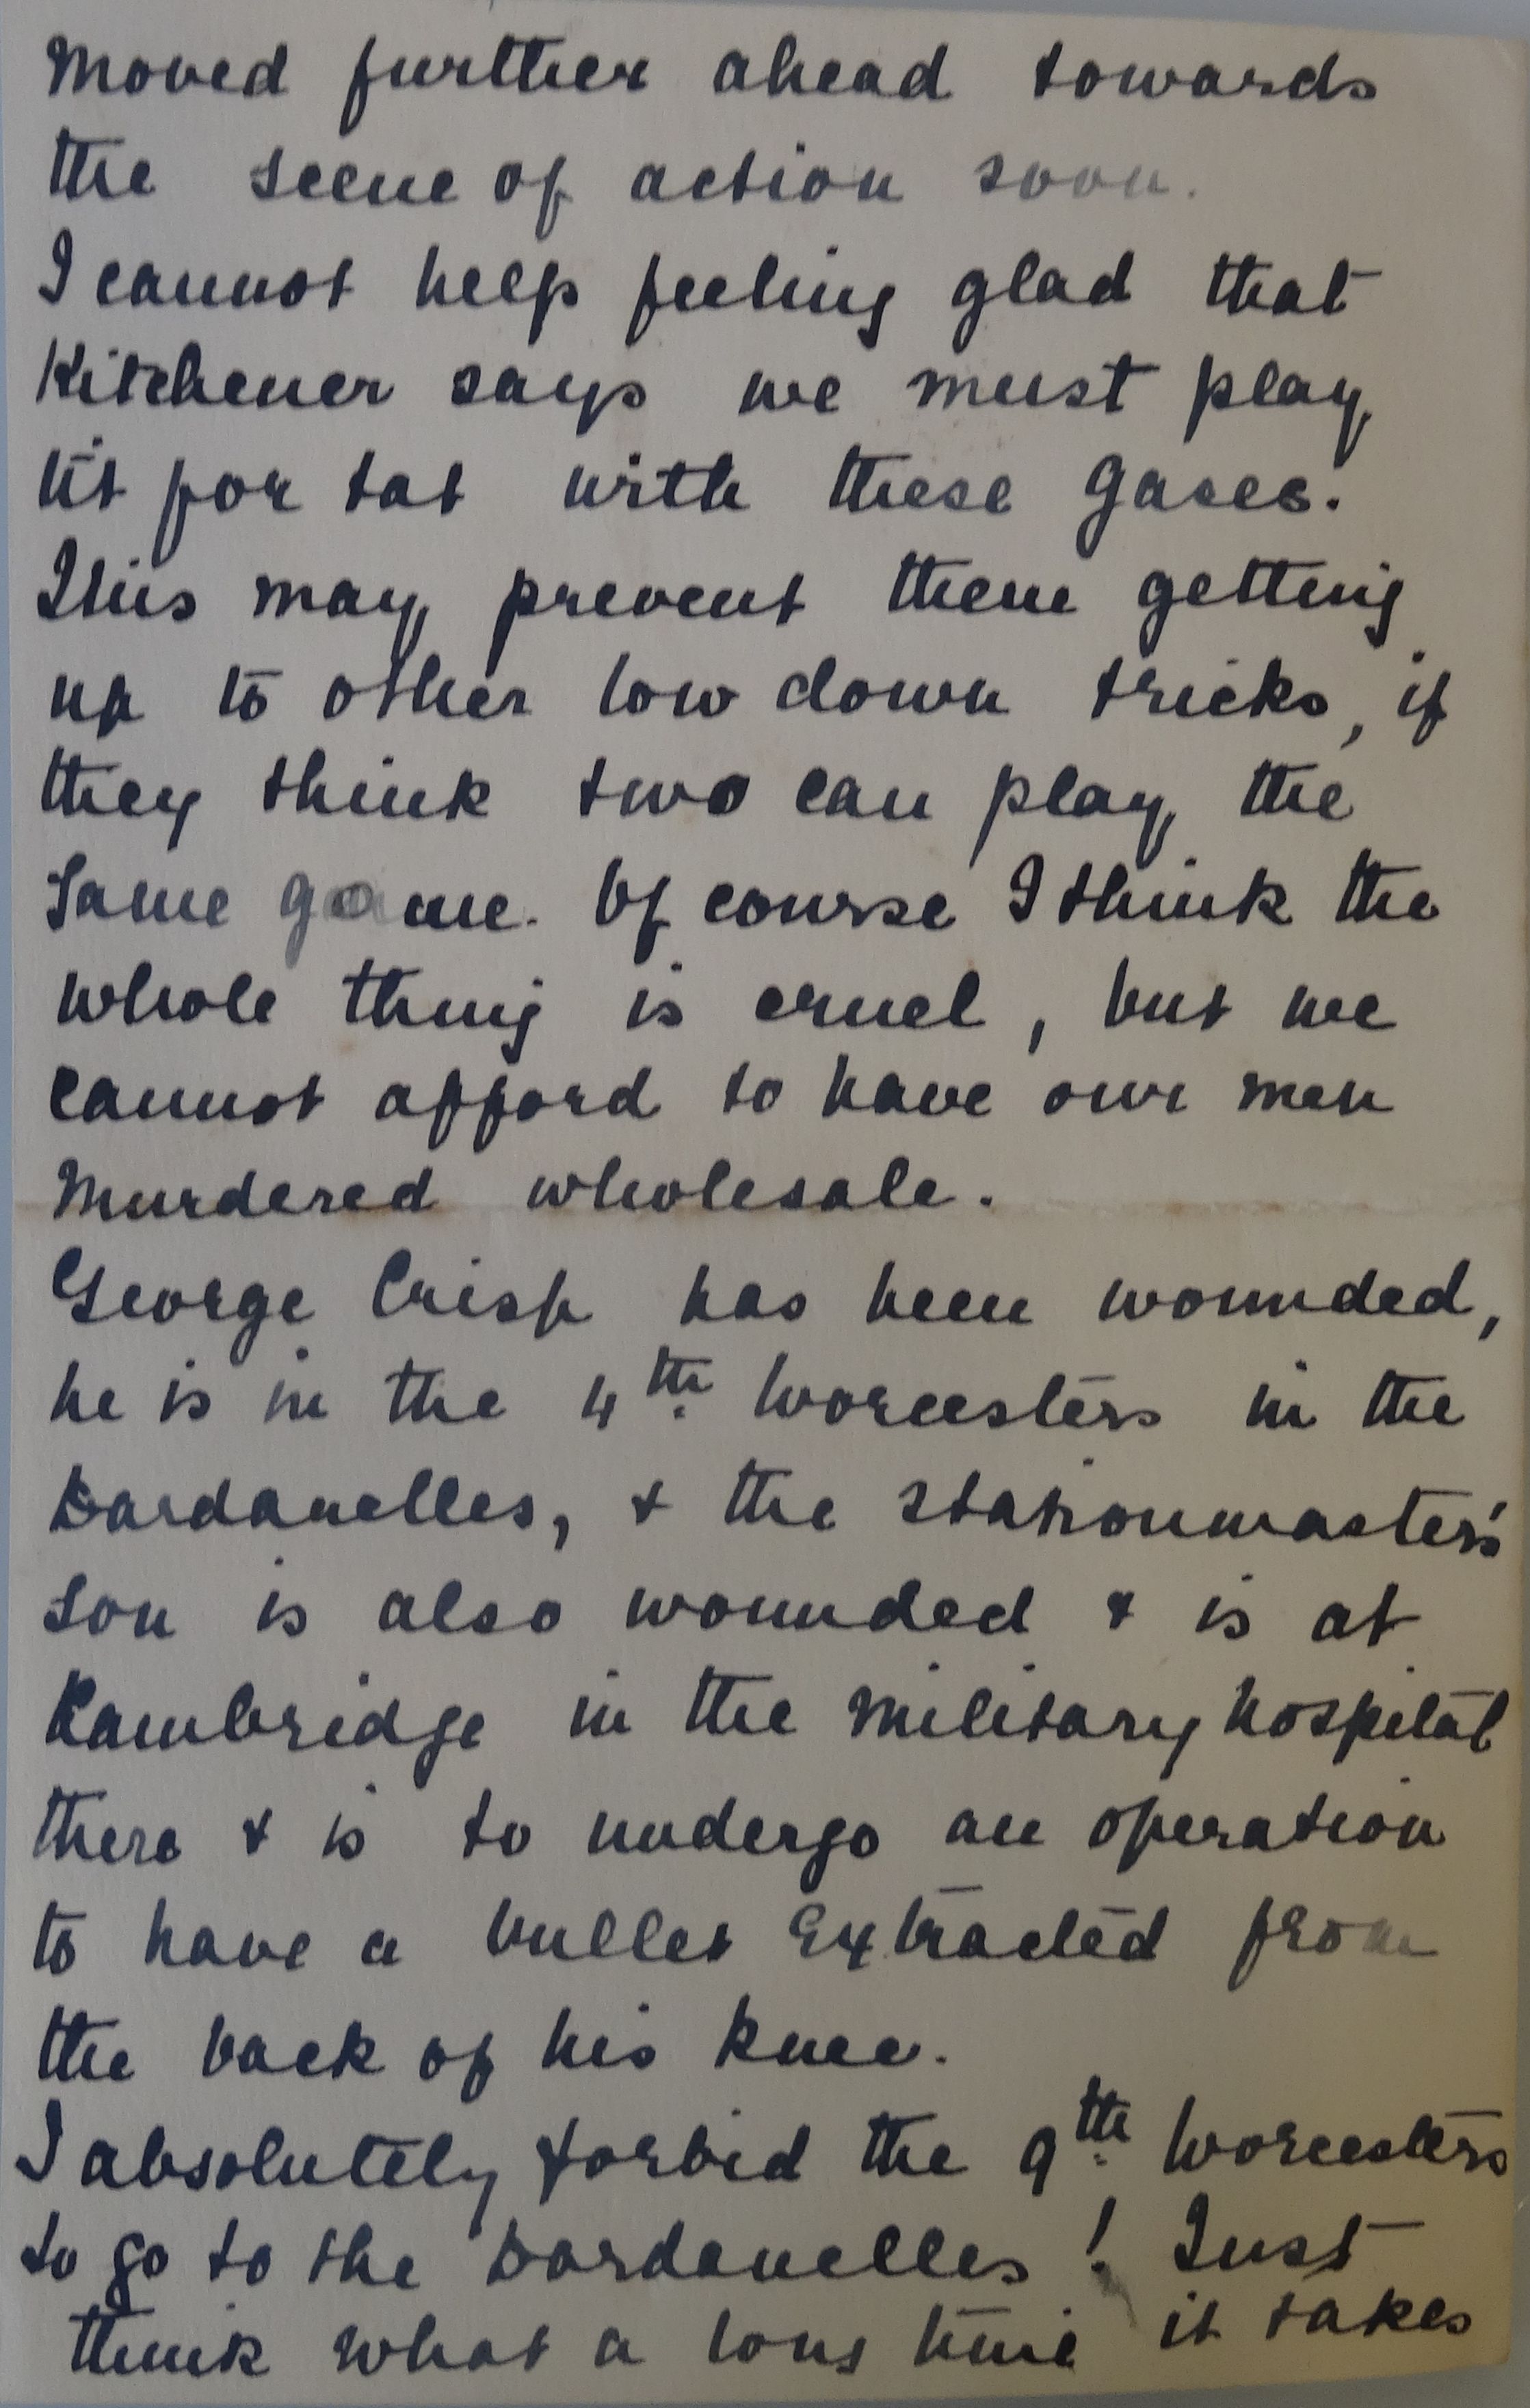 moved further ahead towards
the scene of action soon.
I cannot help feeling glad that
Kitchener says we must play
tit for tat with these gases.
This may prevent them getting
up to other low down tricks, if
they think two can play the
same game. Of course I think the
whole thing is cruel, but we
cannot afford to have our men
murdered wholesale.
George Crisp has been wounded,
he is in the 4th Worcesters in the
Dardanelles, & the stationmaster's
son is also wounded & is at
Cambridge in the military hospital
there & is to undergo an operation
to have a bullet extracted from
the back of his knee.
I absolutely forbid the 9th Worcesters
to go to the Dardanelles! Just
think what a long time it takes